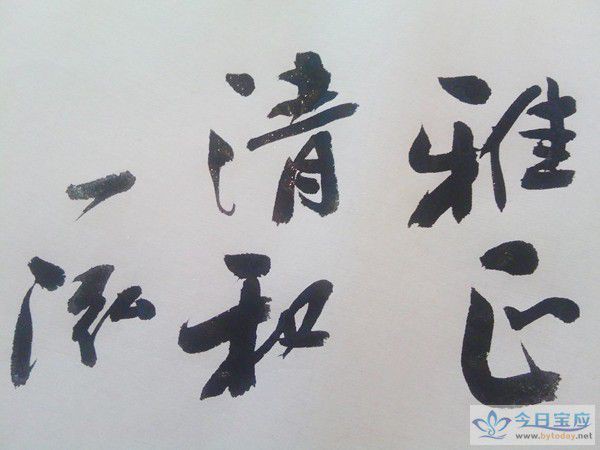 雅正
清和
一泓
今日宝应
www.bytoday.net